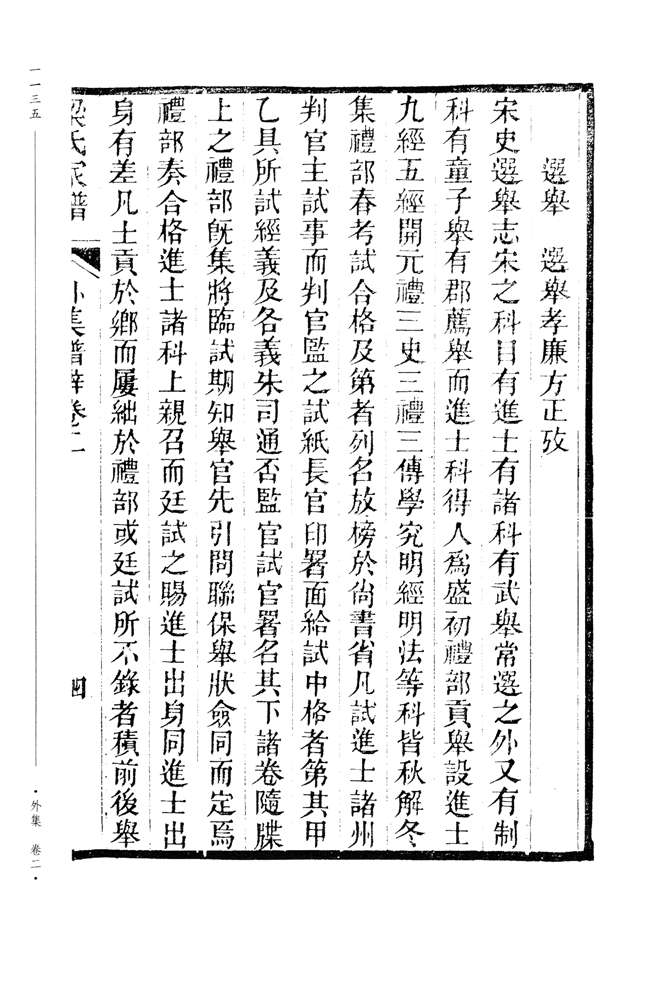 選舉　選舉孝廉方正攷
宋史選舉志宋之科目有進士有諸科有武舉常選之外又有制
科有童子舉有郡薦舉而進士科得人爲盛初禮部貢舉設進士
九經五經開元禮三史三禮三傳學究明經明法等科皆秋解冬
集禮部春考試合格及第者列名放榜於尙書省凡試進士諸州
判官主試事而判官監之試紙長官印署面給試中格者第其甲
乙具所試經義及各義朱司通否監官試官署名其下諸卷隨牒
上之禮部旣集將臨試期知舉官先引問聯保舉狀僉同而定焉
禮部奏合格進士諸科上親召而廷試之賜進士出身同進士出
身有差凡士貢於鄉而屢絀於禮部或廷試所不錄者積前後舉
梁氏家譜　外集譜辭卷二　四
一一三五
·外集　卷二·